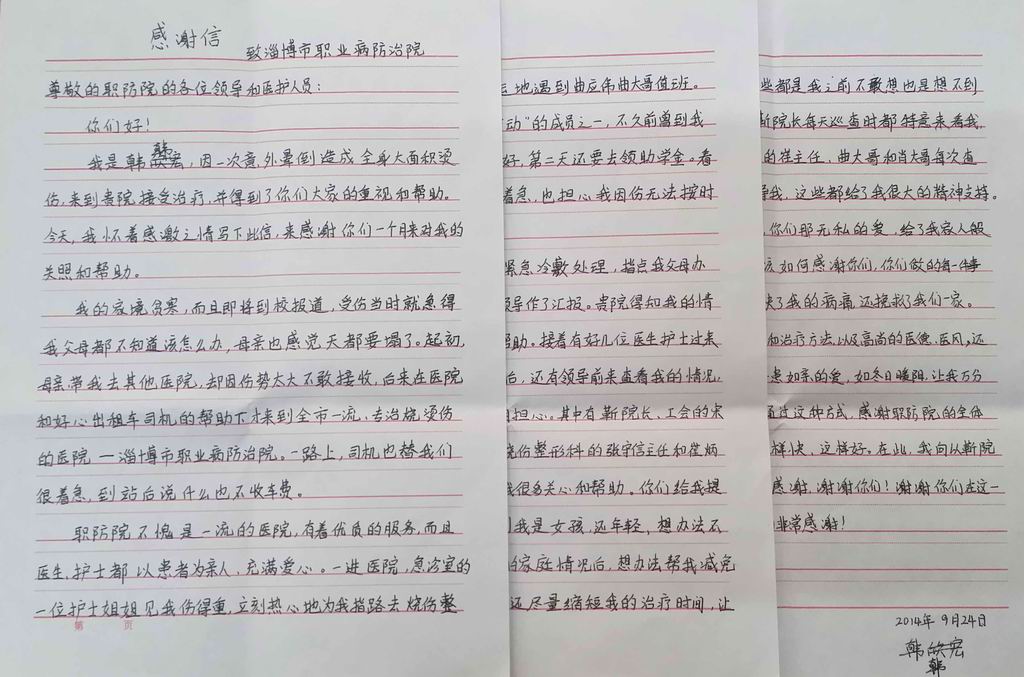 感谢信
致淄博市职业病防治院
尊敬的职防院的各位领导和医护人员：
你们好！
韩
我是韩宏，因一次意外晕倒造成全身大面积烫
伤，来到贵院接受治疗，并得到了你们大家的重视和帮助。
今天，我怀着感激之情写下此信，来感谢你们一个月来对我的
关照和帮助。
我的家境贫寒，而且即将到校报道，受伤当时就急得
我父母都不知道该怎么办，母亲也感觉天都要塌了。起初，
母亲带我去其他医院，却因伤势太大不敢接收，后来在医院
和好心出租车司机的帮助下才来到全市一流、专治烧烫伤
的医院—淄博市职业病防治院。一路上，司机也替我们
很着急，到站后说什么也不收车费。
职防院不愧是一流的医院，有着优质的服务，而且
医生、护士都以患者为亲人，充满爱心。一进医院，急诊室的
一位护士姐姐见我伤得重，立刻热心地为我指路去烧伤整
第 页
地遇到曲应伟曲大哥值班。
动”的成员之一，不久前曾到我
好，第二天还要去领助学金。看
着急，也担心我因伤无法按时
紧急冷敷处理，指点我父母办
导作了汇报。贵院得知我的情
帮助。接着有好几位医生护士过来
后，还有领导前来查看我的情况，
担心。其中有靳院长、工会的宋
烧伤整形科的张宇信主任和崔炳
我很多关心和帮助。你们给我提
我是女孩，还年轻，想办法不
家庭情况后，想办法帮我减免
还尽量缩短我的治疗时间，让
些都是我之前不敢想也是想不到
靳院长每天巡查时都特意来看我，
的崔主任，曲大哥和肖大哥每次查
我，这些都给了我很大的精神支持。
你们那无私的爱，给了我家人般
该如何感谢你们，你们做的每一件事
决了我的病痛，还挽救了我们一家。
和治疗方法，以及高尚的医德、医风，还
患如亲的爱，如冬日暖阳，让我万分
通过这种方式，感谢职防院的全体
样快、这样好。在此，我向以靳院
感谢，谢谢你们！谢谢你们在这一
非常感谢！
2014年9月24日
韩宏
韩